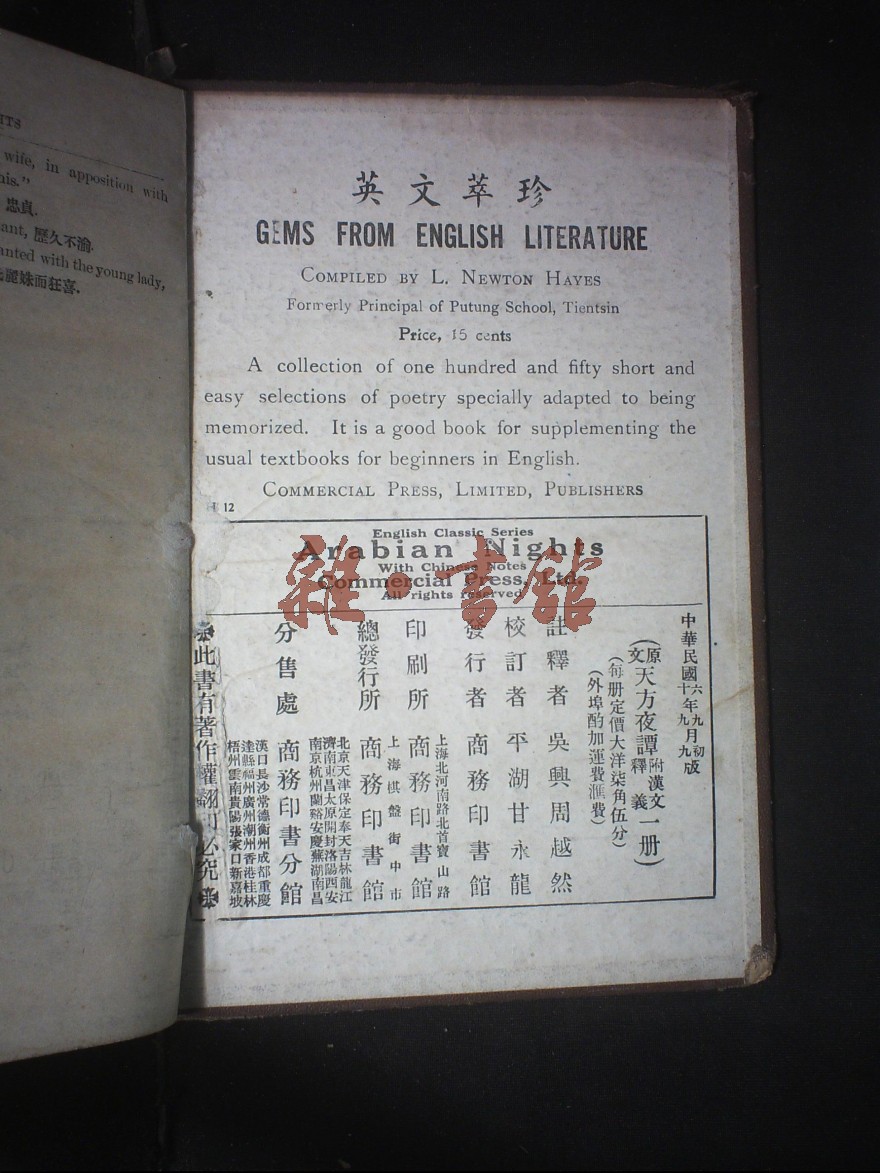 HTS
wife, in apposition with
his."
忠貞.
ant, 歷久不渝.
anted with the young lady,
麗姝而狂喜.
英文萃珍
GEMS FROM ENGLISH LITERATURE
COMPILED BY L. NEWTON HAYES
Formerly Principal of Putung School, Tientsin
Price, 15 cents
A collection of one hundred and fifty short and
easy selections of poetry specially adapted to being
memorized. It is a good book for supplementing the
usual textbooks for beginners in English.
COMMERCIAL PRESS, LIMITED, PUBLISHERS
12
English Classic Series
Arabian Nights
With Chinese Notes
Commercial Press, Ltd.
All rights reserved
雜·書館
中華民國六年九月初版
十九九
(原文天方夜譚附漢文釋義一册)
(每册定價大洋柒角伍分)
(外埠酌加運費滙費)
註釋者 吳興周越然
校訂者 平湖甘永龍
發行者 商務印書館
印刷所 上海北河南路北首寶山路 商務印書館
總發行所 上海棋盤街中市 商務印書館
分售處 商務印書分館
北京天津保定奉天吉林龍江
濟南東昌太原開封洛陽西安
南京杭州蘭谿安慶蕪湖南昌
漢口長沙常德衡州成都重慶
達縣福州廣州潮州香港桂林
梧州雲南貴陽張家口新嘉坡
此書有著作權翻印必究